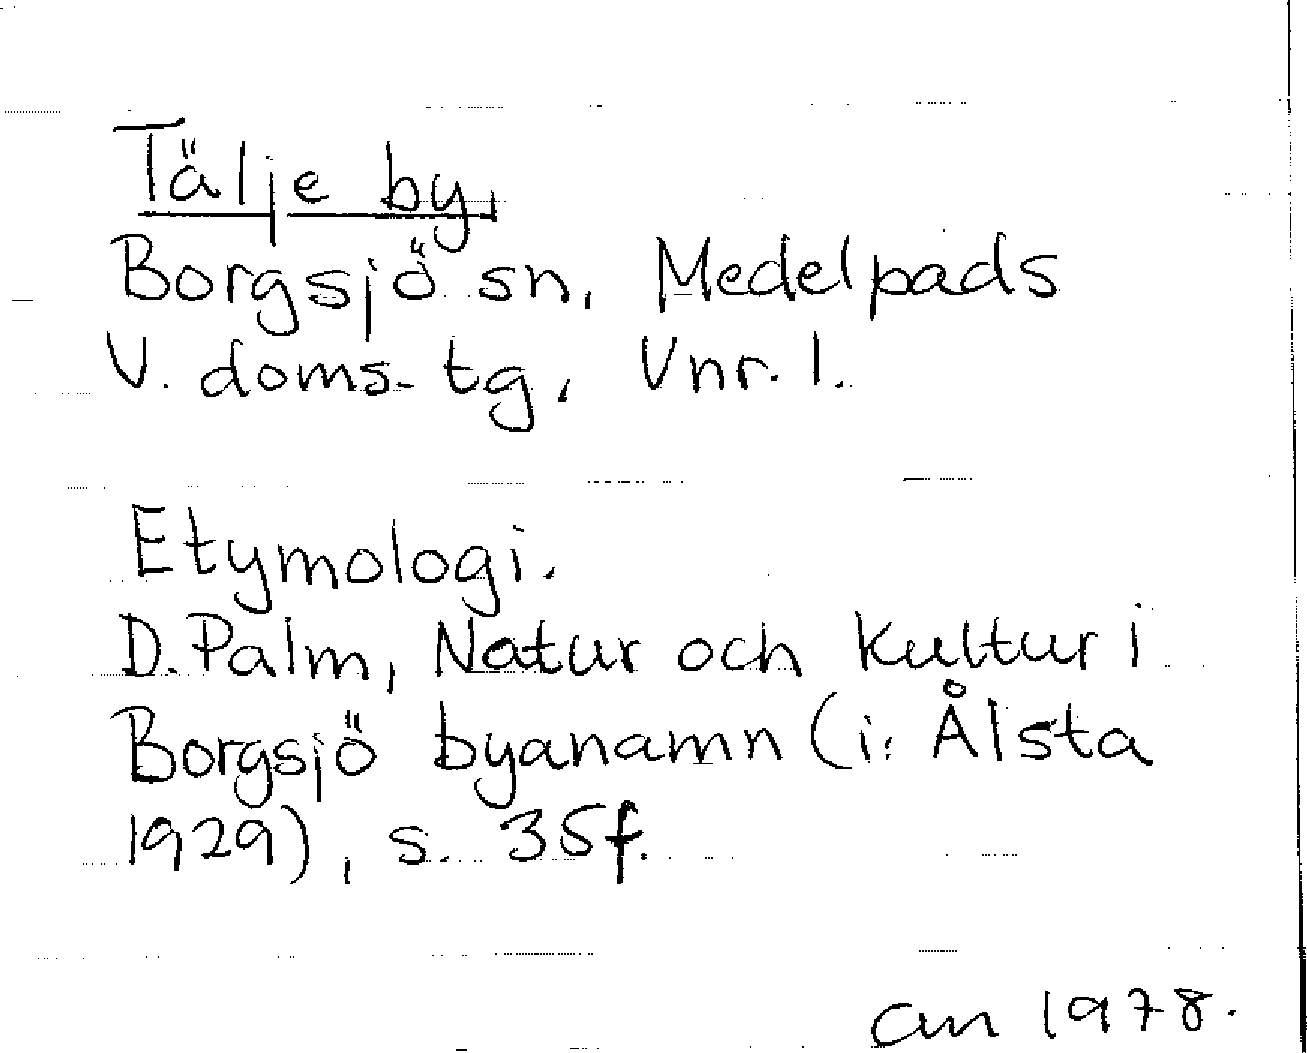 Tälje by,
Borgsjö sn, Medelpads
V. doms. tg, Vnr. 1.
Etymologi.
D. Palm, Natur och Kultur i
Borgsjö byanamn (i: Ålsta
1929), s. 35f.
an 1978.